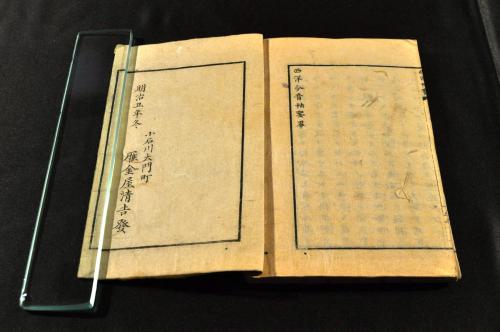 西洋今昔袖
明治五年冬
小石川大門町
雁金屋清吉發